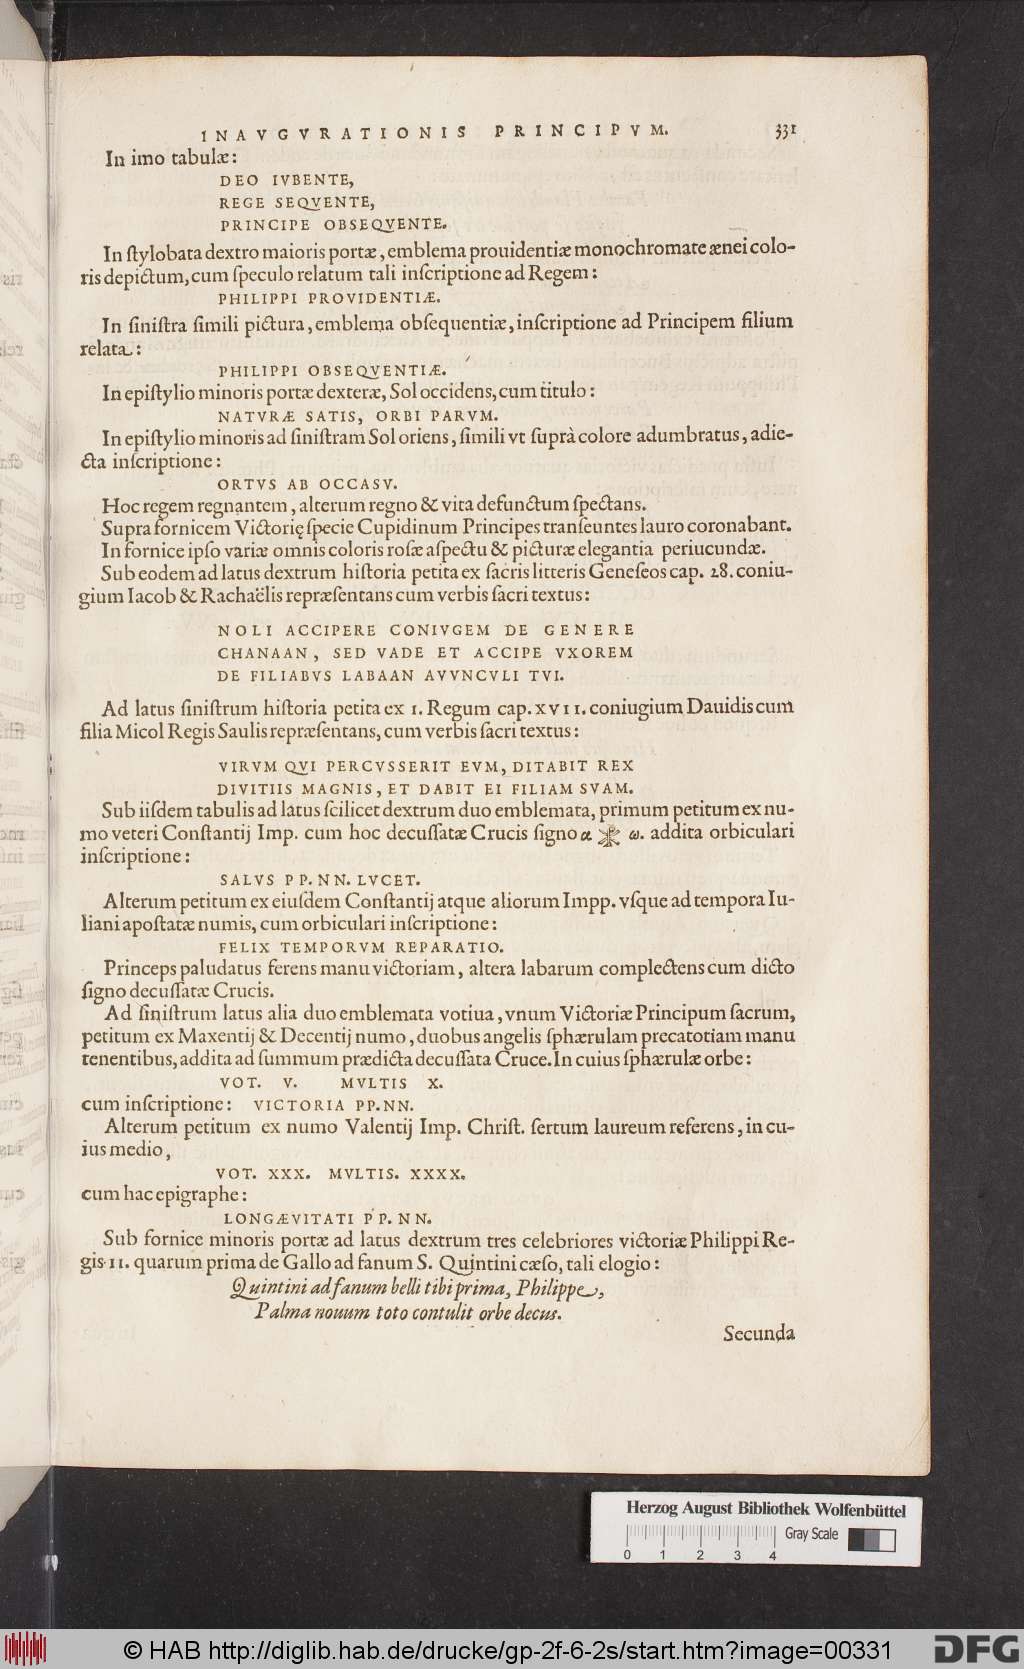 INAVGVRATIONIS PRINCIPVM. 331
In imo tabulæ:
DEO IVBENTE,
REGE SEQVENTE,
PRINCIPE OBSEQVENTE.
In ſtylobata dextro maioris portæ, emblema prouidentiæ monochromate ænei colo-
ris depictum, cum ſpeculo relatum tali inſcriptione ad Regem:
PHILIPPI PROVIDENTIÆ.
In ſiniſtra ſimili pictura, emblema obſequentiæ, inſcriptione ad Principem filium
relata:
PHILIPPI OBSEQVENTIÆ.
In epiſtylio minoris portæ dexteræ, Sol occidens, cum titulo:
NATVRÆ SATIS, ORBI PARVM.
In epiſtylio minoris ad ſiniſtram Sol oriens, ſimili vt ſuprà colore adumbratus, adie-
cta inſcriptione:
ORTVS AB OCCASV.
Hoc regem regnantem, alterum regno & vita defunctum ſpectans.
Supra fornicem Victorię ſpecie Cupidinum Principes tranſeuntes lauro coronabant.
In fornice ipſo variæ omnis coloris roſæ aſpectu & picturæ elegantia periucundæ.
Sub eodem ad latus dextrum hiſtoria petita ex ſacris litteris Geneſeos cap. 28. coniu-
gium Iacob & Rachaëlis repræſentans cum verbis ſacri textus:
NOLI ACCIPERE CONIVGEM DE GENERE
CHANAAN, SED VADE ET ACCIPE VXOREM
DE FILIABVS LABAAN AVVNCVLI TVI.
Ad latus ſiniſtrum hiſtoria petita ex 1. Regum cap. XVII. coniugium Dauidis cum
filia Micol Regis Saulis repræſentans, cum verbis ſacri textus:
VIRVM QVI PERCVSSERIT EVM, DITABIT REX
DIVITIIS MAGNIS, ET DABIT EI FILIAM SVAM.
Sub iiſdem tabulis ad latus ſcilicet dextrum duo emblemata, primum petitum ex nu-
mo veteri Conſtantij Imp. cum hoc decuſſatæ Crucis ſigno α ☧ ω. addita orbiculari
inſcriptione:
SALVS PP. NN. LVCET.
Alterum petitum ex eiuſdem Conſtantij atque aliorum Impp. vſque ad tempora Iu-
liani apoſtatæ numis, cum orbiculari inſcriptione:
FELIX TEMPORVM REPARATIO.
Princeps paludatus ferens manu victoriam, altera labarum complectens cum dicto
ſigno decuſſatæ Crucis.
Ad ſiniſtrum latus alia duo emblemata votiua, vnum Victoriæ Principum ſacrum,
petitum ex Maxentij & Decentij numo, duobus angelis ſphærulam precatotiam manu
tenentibus, addita ad ſummum prædicta decuſſata Cruce. In cuius ſphærulæ orbe:
VOT. V. MVLTIS X.
cum inſcriptione: VICTORIA PP. NN.
Alterum petitum ex numo Valentij Imp. Chriſt. ſertum laureum referens, in cu-
ius medio,
VOT. XXX. MVLTIS. XXXX.
cum hac epigraphe:
LONGÆVITATI PP. NN.
Sub fornice minoris portæ ad latus dextrum tres celebriores victoriæ Philippi Re-
gis II. quarum prima de Gallo ad fanum S. Quintini cæſo, tali elogio:
Quintini ad fanum belli tibi prima, Philippe,
Palma nouum toto contulit orbe decus.
Secunda
Herzog August Bibliothek Wolfenbüttel
Gray Scale
0 1 2 3 4
© HAB http://diglib.hab.de/drucke/gp-2f-6-2s/start.htm?image=00331
DFG